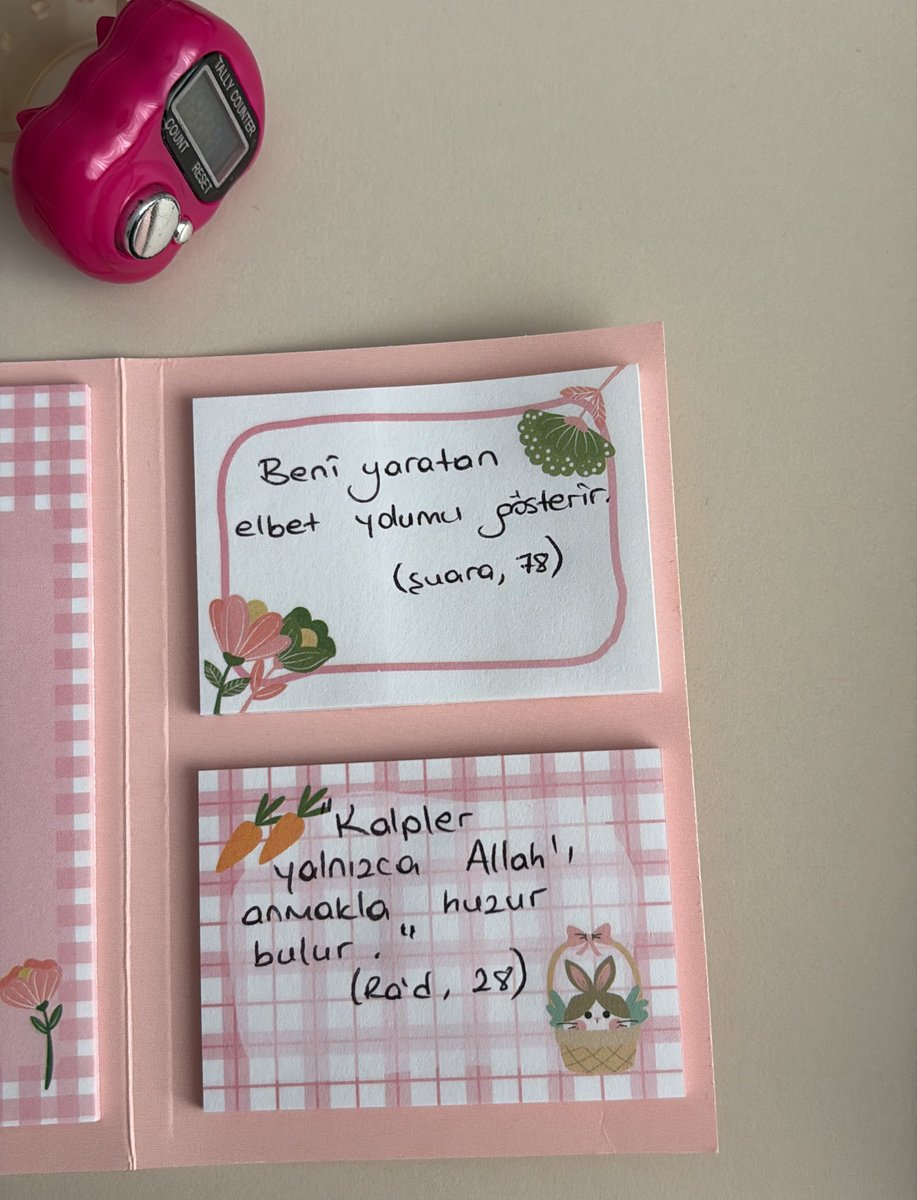 TALLY COUNTER
COUNT RESET
Beni yaratan
elbet yolumu gösterir.
(şuara, 78)
"Kalpler
yalnızca Allah'ı
anmakla huzur
bulur."
(Ra'd, 28)